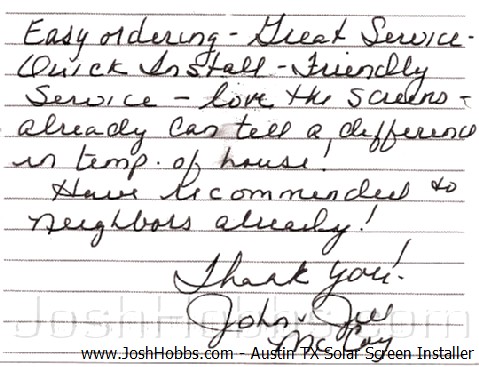 Easy ordering - Great Service -
Quick Install - Friendly
Service - love the screens -
already can tell a difference
in temp. of house!
Have recommended to
neighbors already!
Thank you!
John & Jill
McCoy
JoshHobbs.com
www.JoshHobbs.com - Austin TX Solar Screen Installer